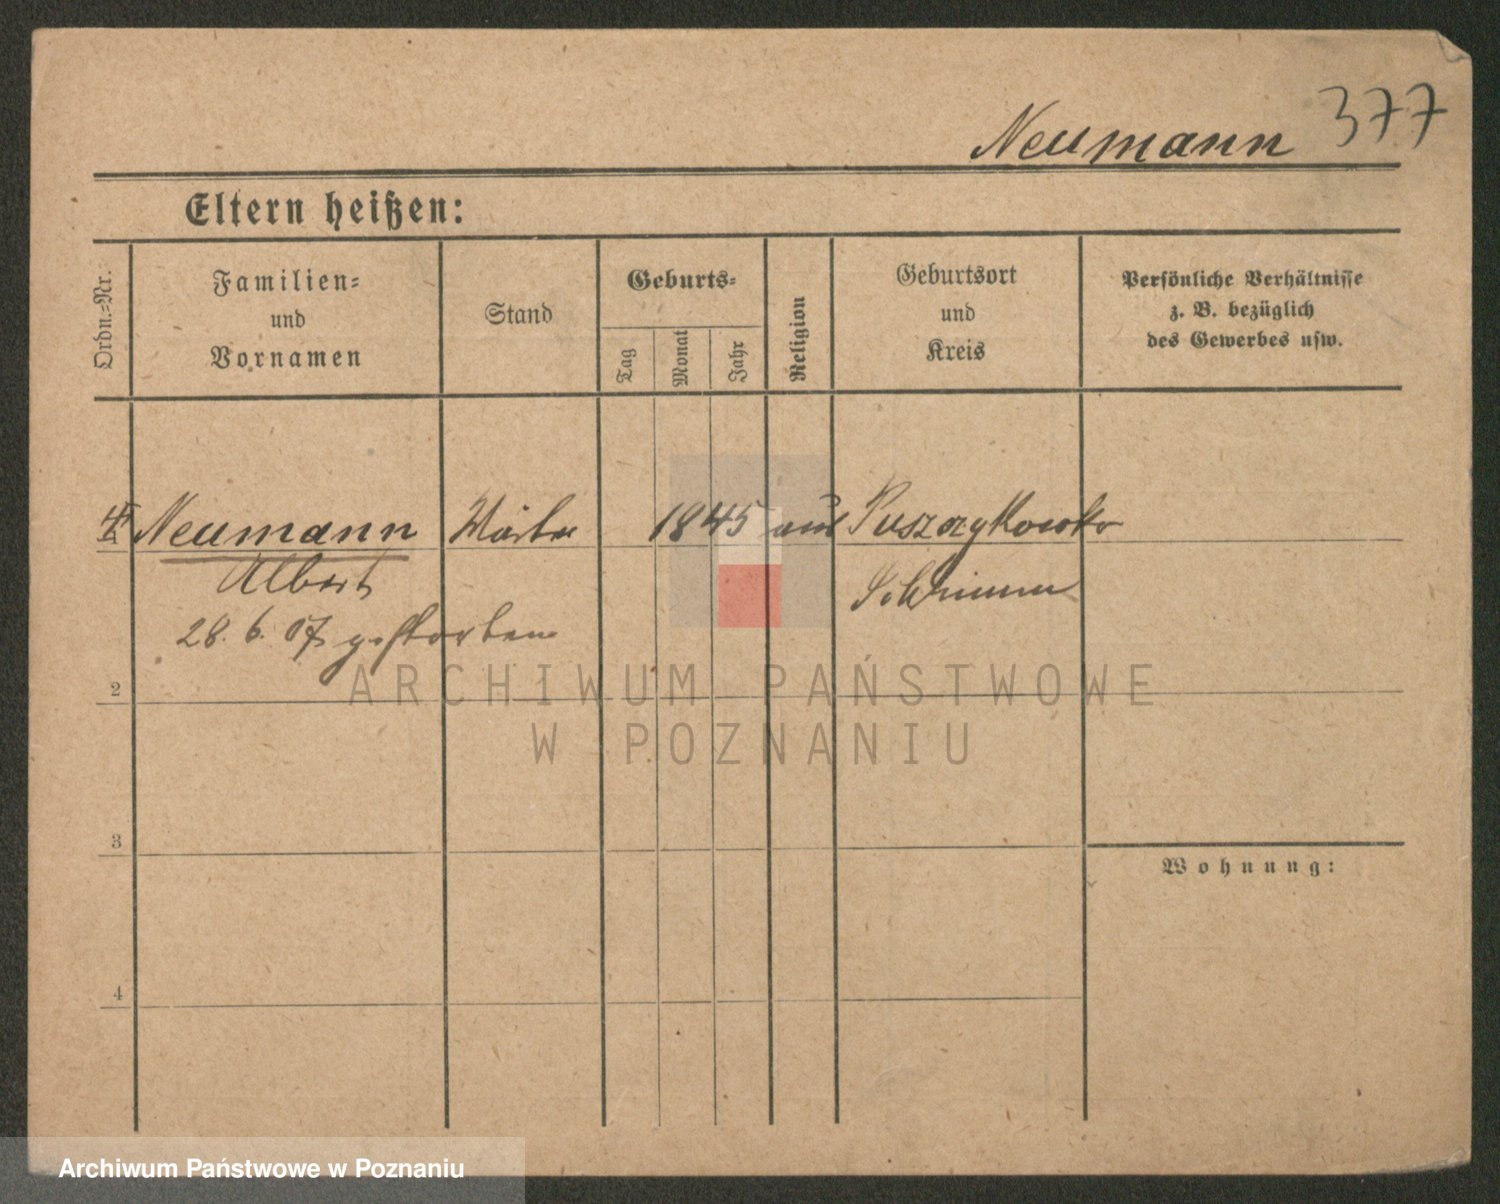 Neumann 377
Eltern heißen:
Ordn.=Nr.
Familien=
und
Vornamen
Stand
Geburts=
Tag
Monat
Jahr
Religion
Geburtsort
und
Kreis
Persönliche Verhältnisse
z. B. bezüglich
des Gewerbes usw.
Neumann 1845 aus Puszczykowko
Albert Schrimm
28. 6. 07 gestorben
2
3
4
Wohnung:
ARCHIWUM PAŃSTWOWE
W POZNANIU
Archiwum Państwowe w Poznaniu